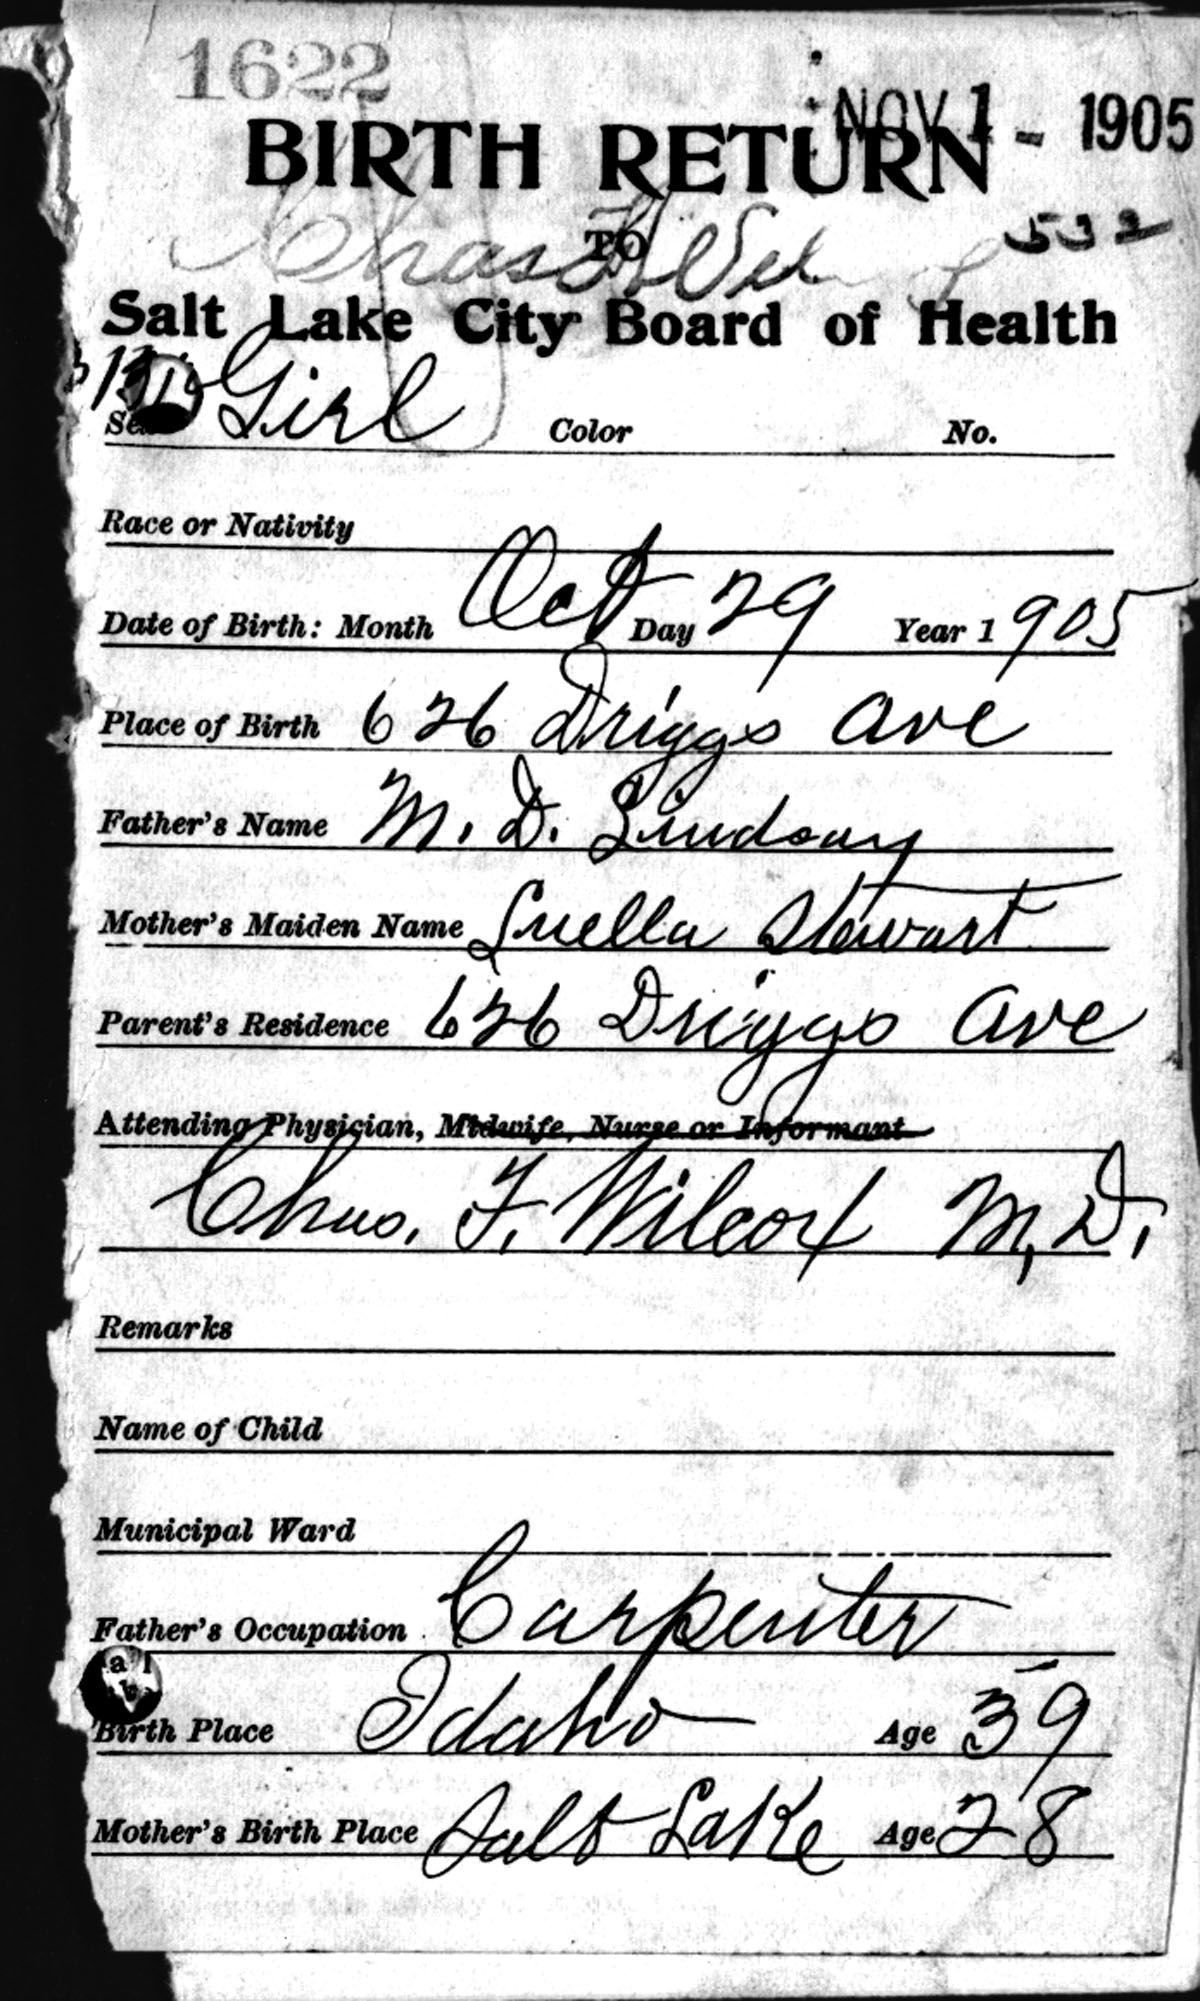 1622
NOV 1 - 1905
BIRTH RETURN
TO 532
Chas
Salt Lake City Board of Health
Girl Color No.
Race or Nativity
Date of Birth: Month Oct Day 29 Year 1905
Place of Birth 626 Driggs Ave
Father's Name M. D. Lindsay
Mother's Maiden Name Luella Stewart
Parent's Residence 626 Driggs Ave
Attending Physician, Midwife, Nurse or Informant
Chas. F. Wilcox M.D.
Remarks
Name of Child
Municipal Ward
Father's Occupation Carpenter
Birth Place Idaho Age 39
Mother's Birth Place Salt Lake Age 28